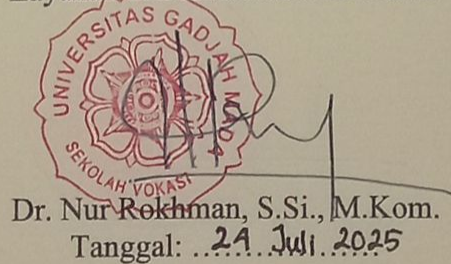 UNIVERSITAS GADJAH MADA
SEKOLAH VOKASI
Dr. Nur Rokhman, S.Si., M.Kom.
Tanggal: 24 Juli 2025